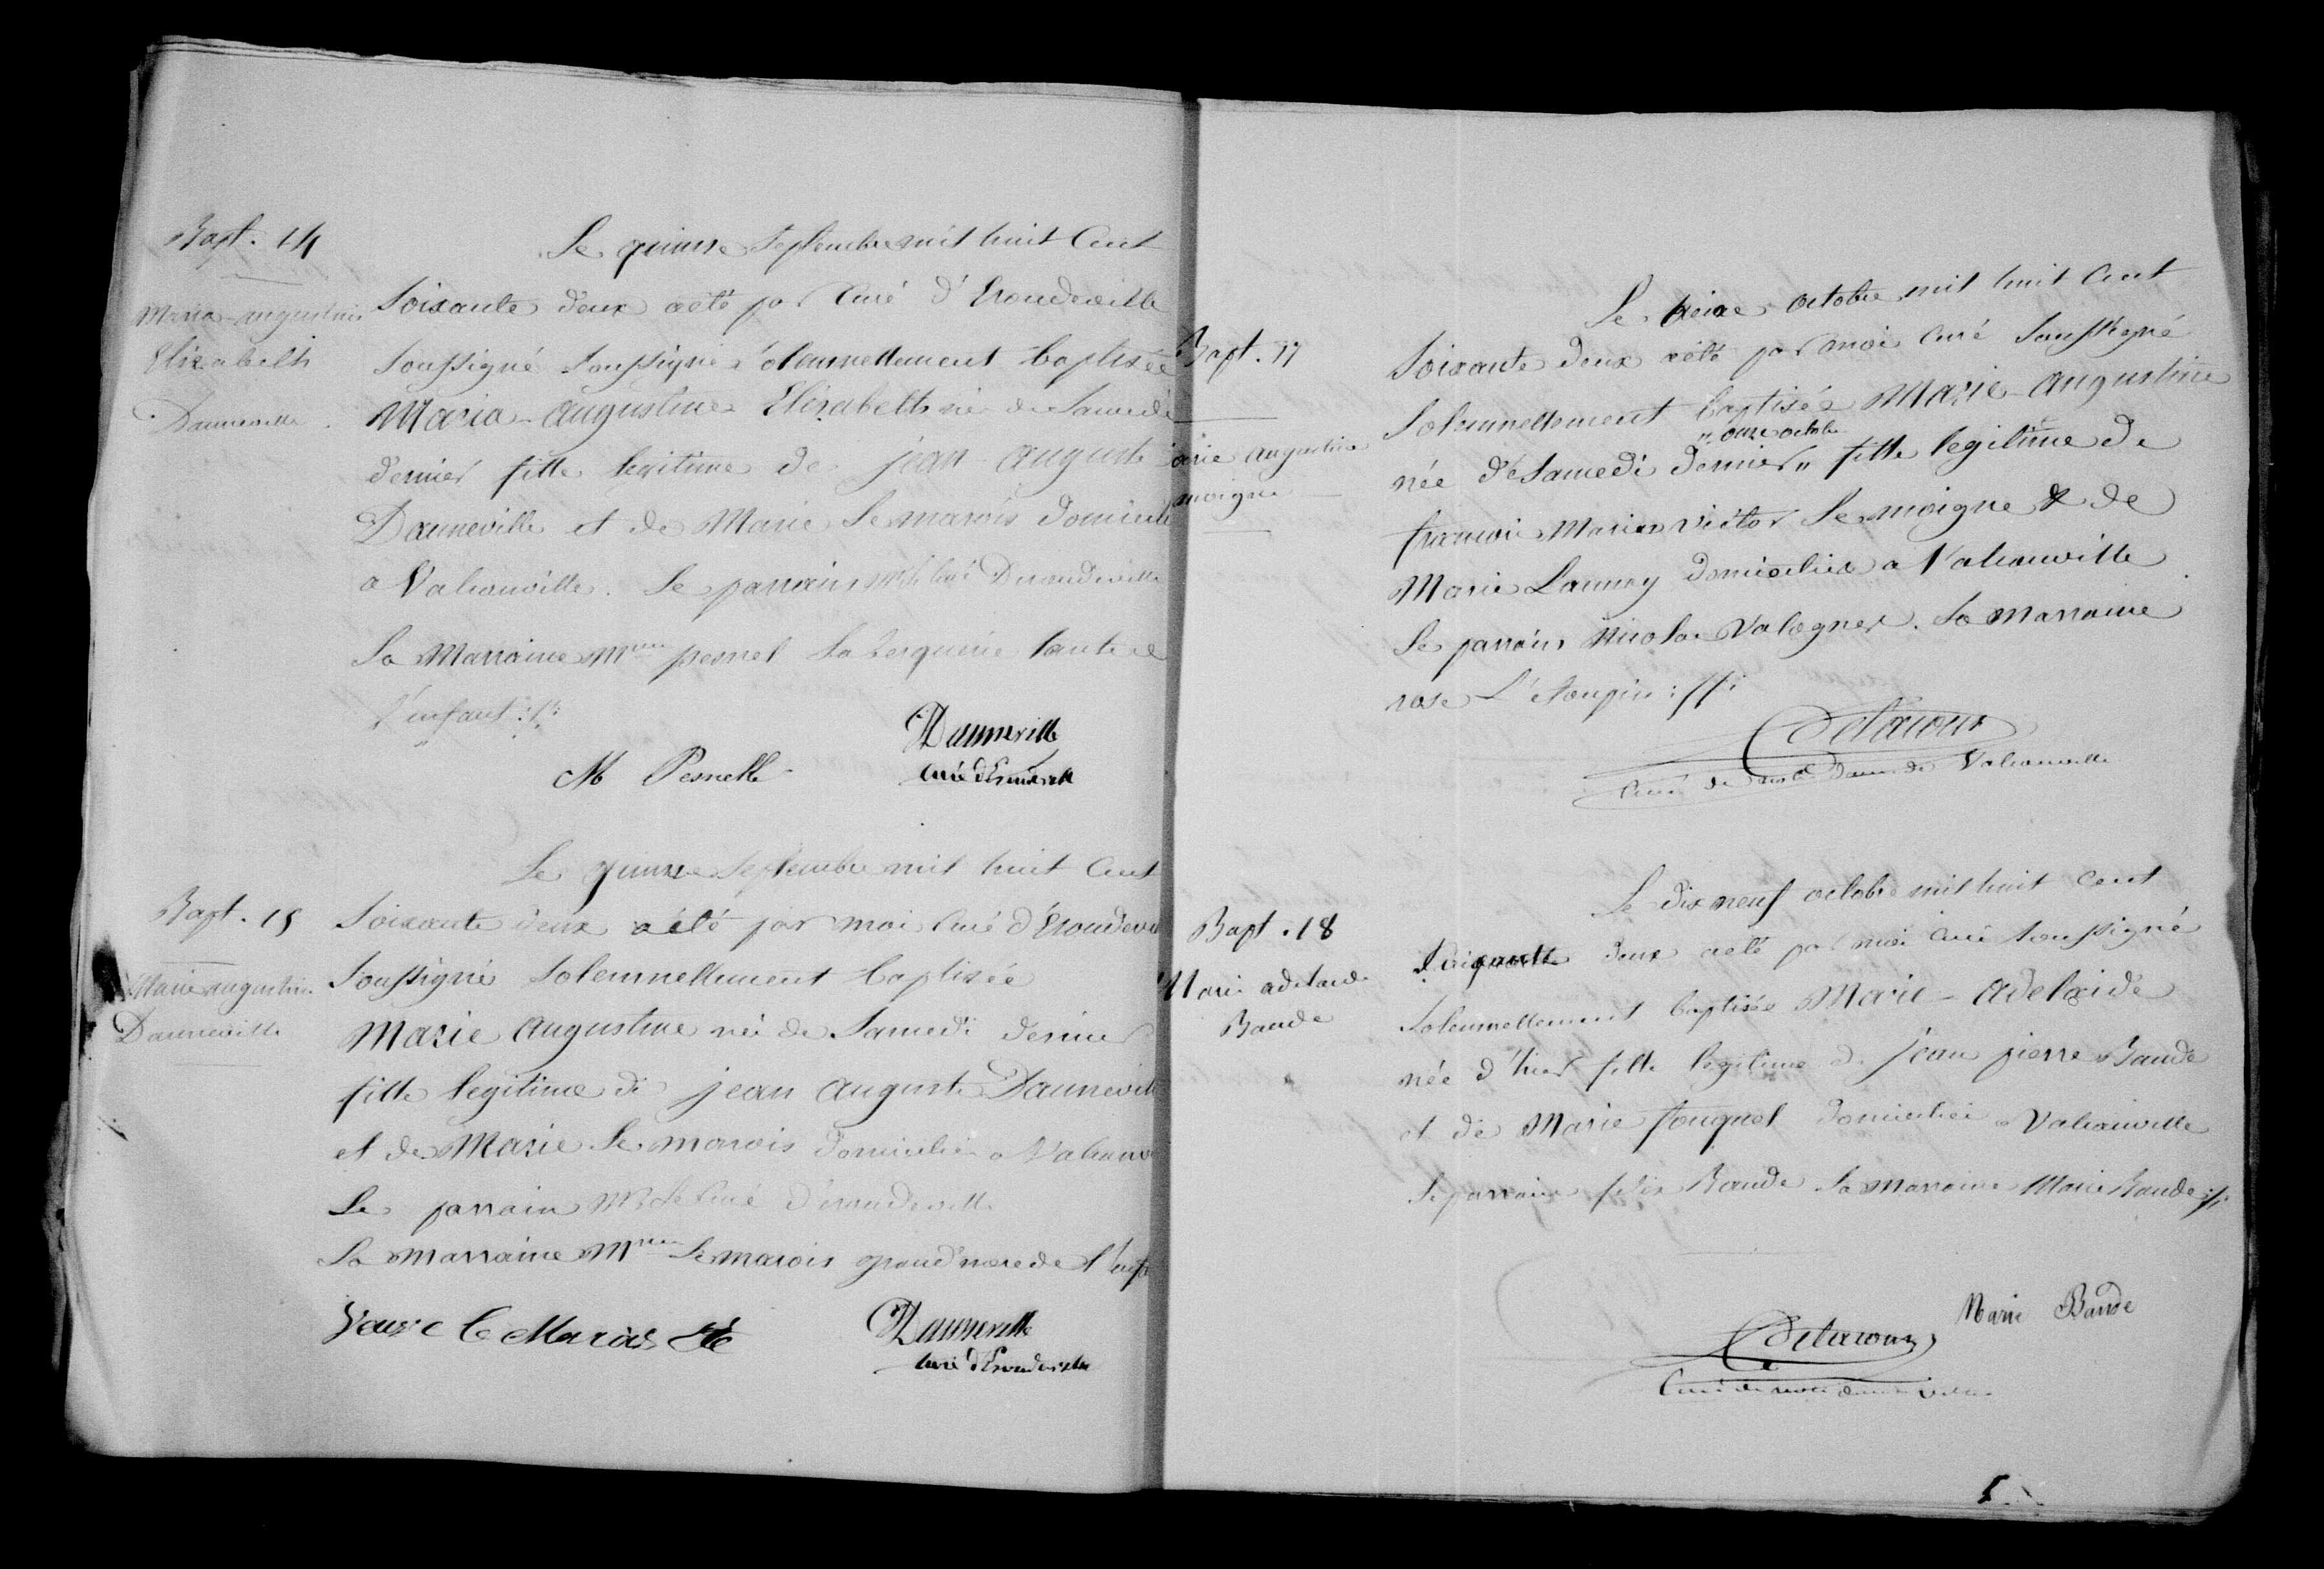 Bapt. 14
Maria-augustine
Elizabeth
Danneville
Le quinse Septembre mil huit Cent
Soixante deux aété par Curé d'Eroudeville
Soussigné Soussigné Solennellement baptisée
Maria-Augustine Elisabeth née de Samedi
dernier fille legitime de jean Auguste
Danneville et de Marie Lemarois domicilié
a Valcanville. Le parrain Mr le Curé Deroudeville
La Marraine Mme pesnel tante de
l'enfant
M Pesnelle
Danneville
Curé d'Eroudeville
Bapt. 15
Marie augustine
Danneville
Le quinse Septembre mil huit Cent
Soixante deux aété par moi Curé d'Eroudevil
Soussigné Solennellement baptisée
Marie Augustine née de Samedi dernier
fille legitime de jean Auguste Dannevill
et de Marie Le marois domicilié a Valcanv
Le parrain Mr Le Curé d'éroudeville
La marraine Mme Le marois grand'mere de l'enfa
Veuve le Marois
Danneville
Curé d'Eroudeville
Bapt. 17
arie augustine
moigne
Le treize octobre mil huit Cent
Soixante deux aété par moi Curé Soussigné
Solennellement baptisée Marie-Augustine
" onze octobre
née de Samedi dernier " fille legitime de
francoi Marie victor Le moigne & de
Marie Launey domicilié a Valcanville
Le parrain Nicolas Valognes. La marraine
rose L'etoupin
Delacour
Curé de notre Dame de Valcanville
Bapt. 18
Marie adelaide
Baude
Le dix neuf octobre mil huit Cent
Soixante deux aété par moi Curé Soussigné
Solennellement baptisée Marie-Adelaide
née d'hier fille legitime de jean pierre Baude
et de Marie fouquet domicilié a Valcanville
Le parrain felix Baude La marraine Marie Baude
Marie Baude
Delacour
Curé de notre dame de